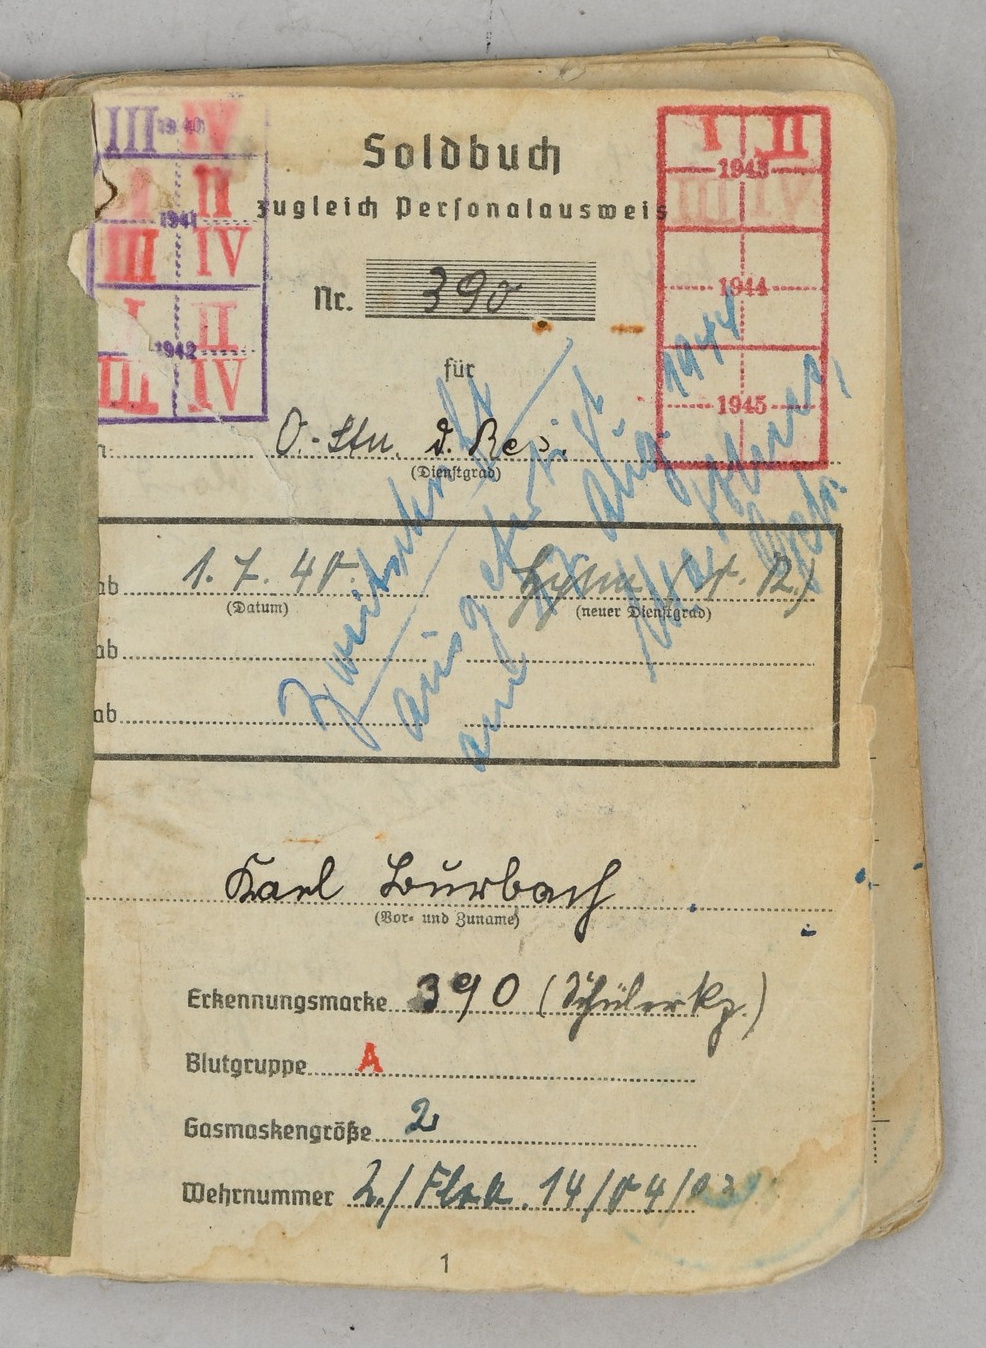 III 1940 IV
I II
1941
III IV
I II
1942
III IV
Soldbuch
zugleich Personalausweis
Nr. 390
für
I II
1943
III IV
1944
1945
O.-Stu. d. Res.
(Dienstgrad)
ab 1. 7. 40.
(Datum) (neuer Dienstgrad)
ab
ab
Zweitschrift
ausgestellt
am Aug. 1944
Karl Burbach
(Vor- und Zuname)
Erkennungsmarke 390 (Schüler Kp.)
Blutgruppe A
Gasmaskengröße 2
Wehrnummer 2./Flak. 14/
1